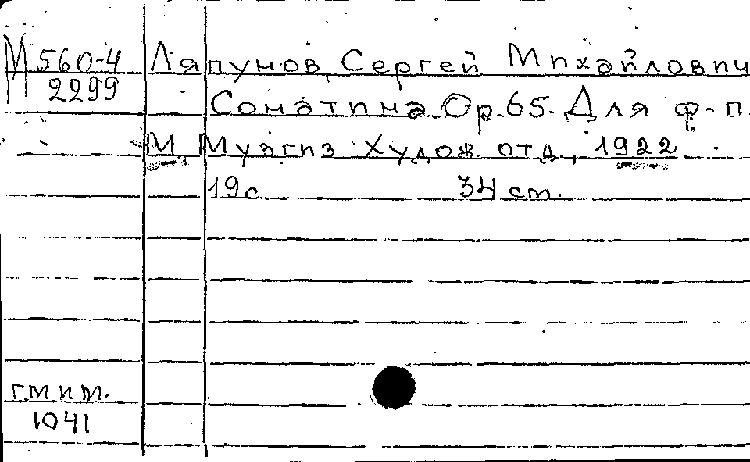 М 560-4 Ляпунов, Сергей Михайлович
2299 Сонатина. Ор. 65. Для ф-п.
М., Музгиз. Худож. отд., 1922
19с 34 cm.
гмим.
1041